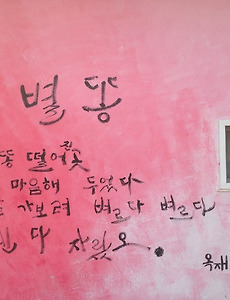 별 똥
똥 떨어진 곳
마음해 두었다
가보려 벼르다 벼르다
다 자랐오.
옥재